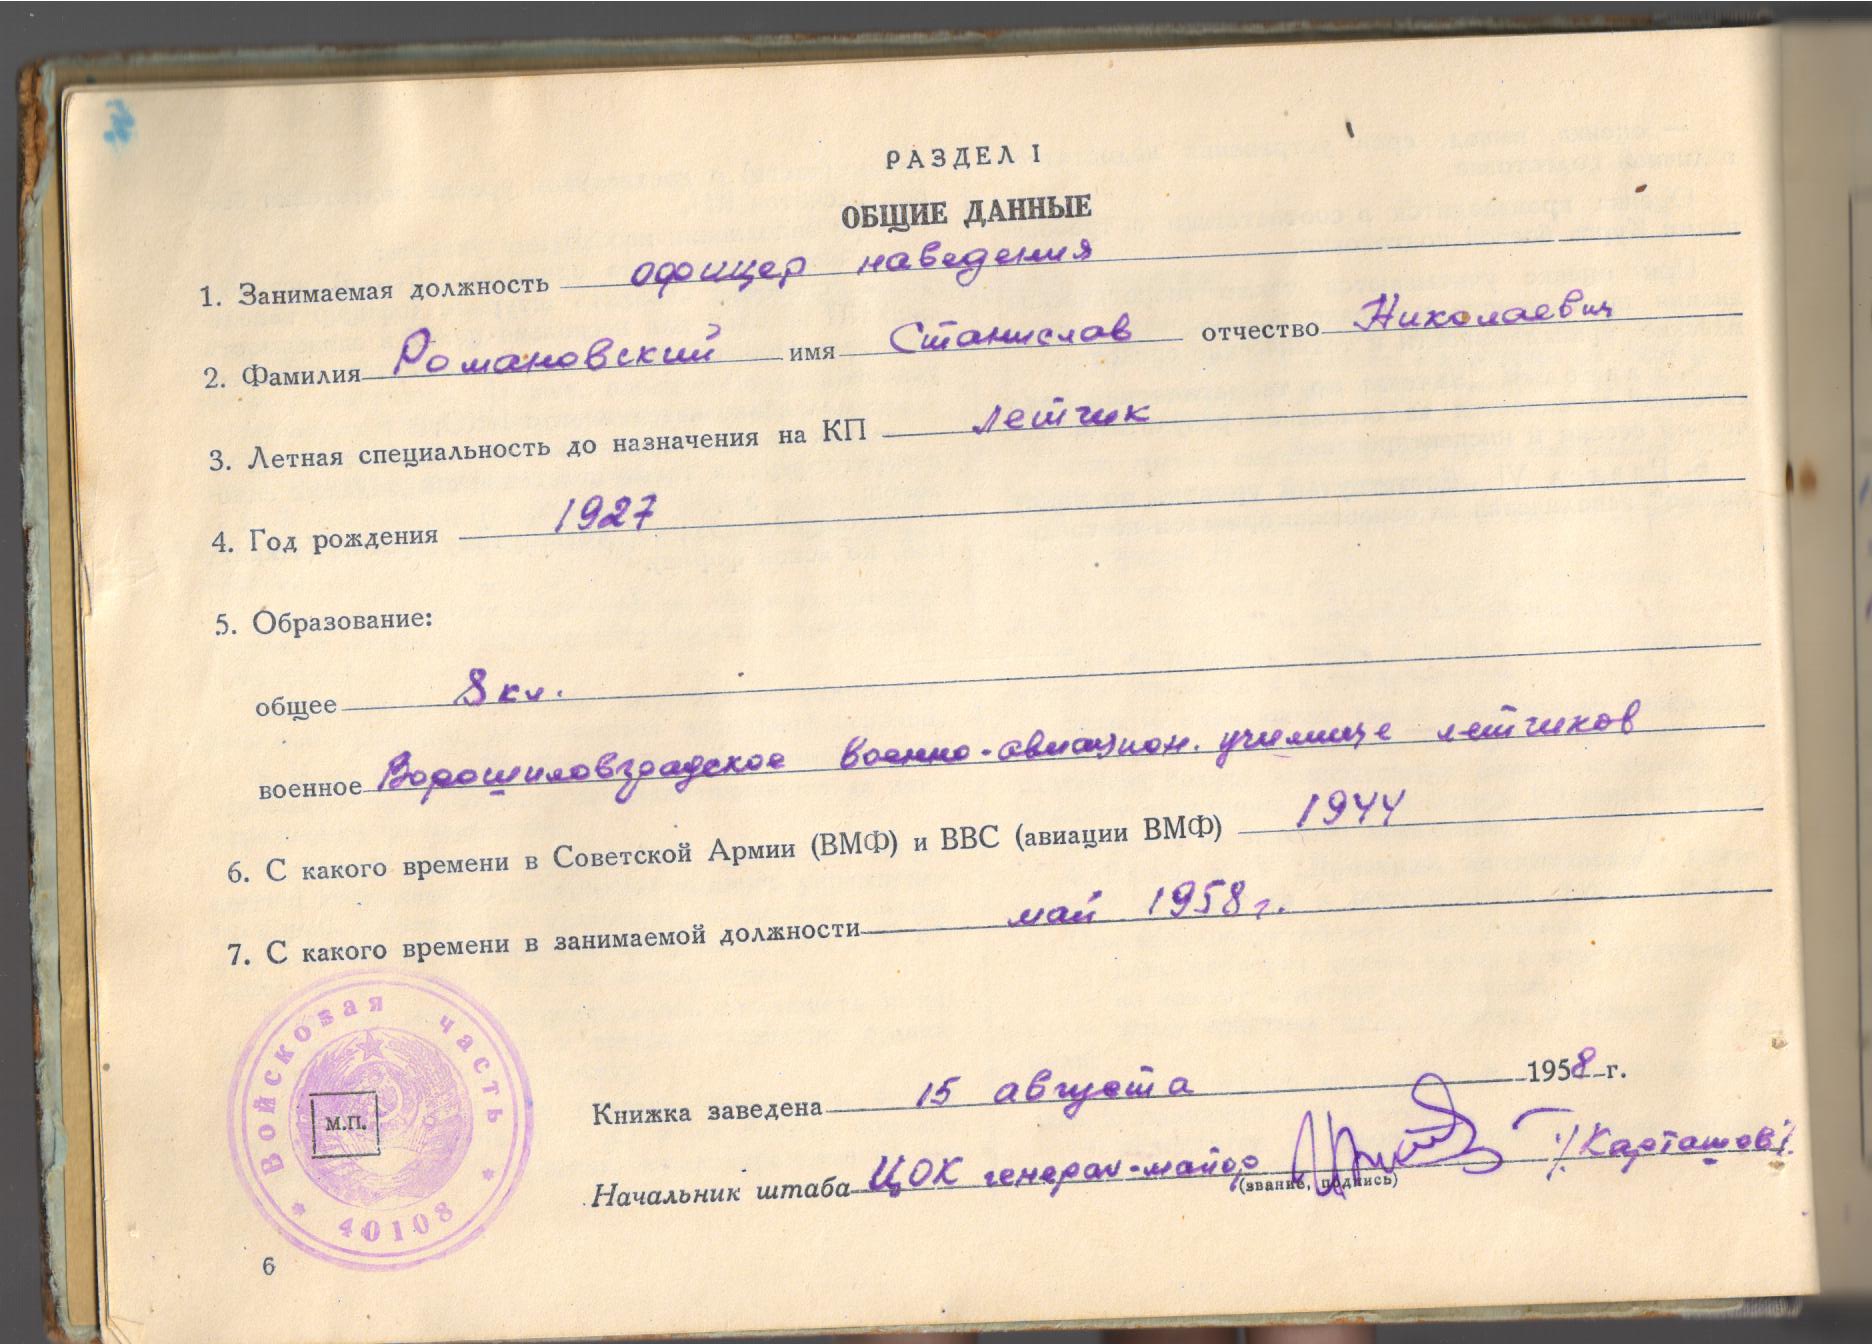 РАЗДЕЛ I
ОБЩИЕ ДАННЫЕ
1. Занимаемая должность офицер наведения
2. Фамилия Романовский имя Станислав отчество Николаевич
3. Летная специальность до назначения на КП летчик
4. Год рождения 1927
5. Образование:
общее 8 кл.
военное Ворошиловградское военно-авиацион. училище летчиков
6. С какого времени в Советской Армии (ВМФ) и ВВС (авиации ВМФ) 1944
7. С какого времени в занимаемой должности май 1958 г.
Войсковая часть
М.П.
* 40108 *
Книжка заведена 15 августа 1958 г.
Начальник штаба ЦОК генерал-майор /Карташов/.
(звание, подпись)
6